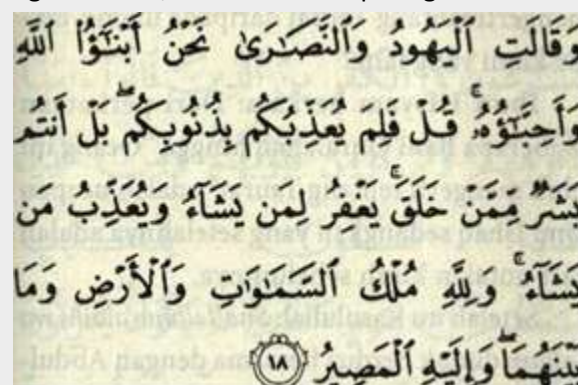 وَقَالَتِ ٱلْيَهُودُ وَٱلنَّصَٰرَىٰ نَحْنُ أَبْنَٰٓؤُا۟ ٱللَّهِ
وَأَحِبَّٰٓؤُهُۥ ۚ قُلْ فَلِمَ يُعَذِّبُكُم بِذُنُوبِكُم ۖ بَلْ أَنتُم
بَشَرٌ مِّمَّنْ خَلَقَ ۚ يَغْفِرُ لِمَن يَشَآءُ وَيُعَذِّبُ مَن
يَشَآءُ ۚ وَلِلَّهِ مُلْكُ ٱلسَّمَٰوَٰتِ وَٱلْأَرْضِ وَمَا
بَيْنَهُمَا ۖ وَإِلَيْهِ ٱلْمَصِيرُ ﴿١٨﴾